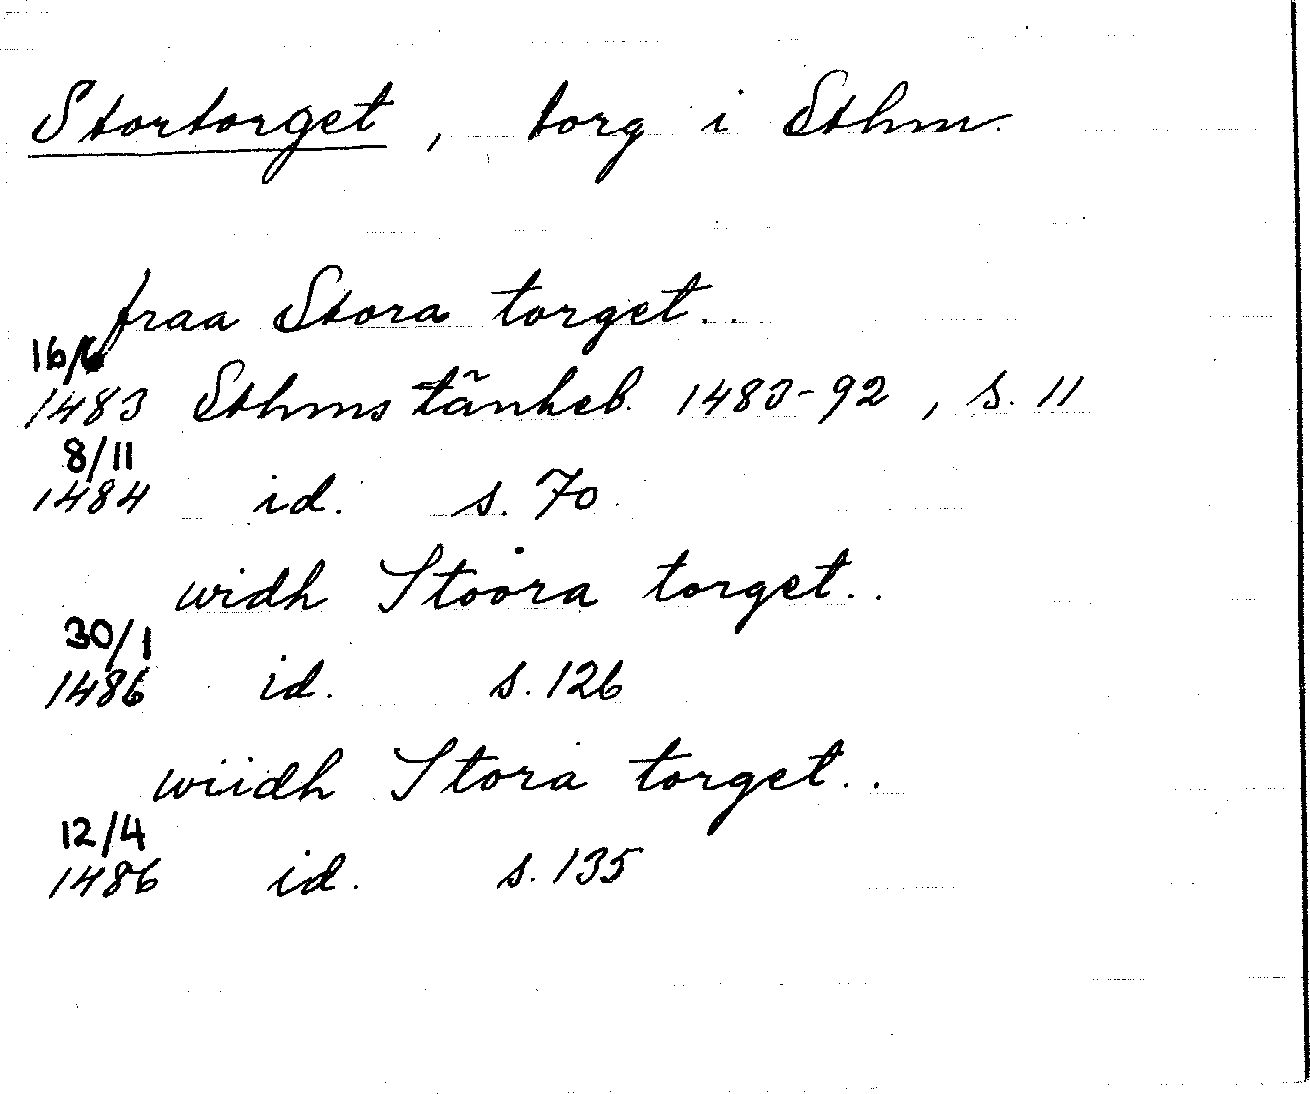 Stortorget, torg i Sthm.
fraa Stora torget..
16/6
1483 Sthms tänkeb. 1483-92, s. 11
8/11
1484 id. s. 70
widh Stoora torget..
30/1
1486 id. s. 126
wiidh Stora torget..
12/4
1486 id. s. 135